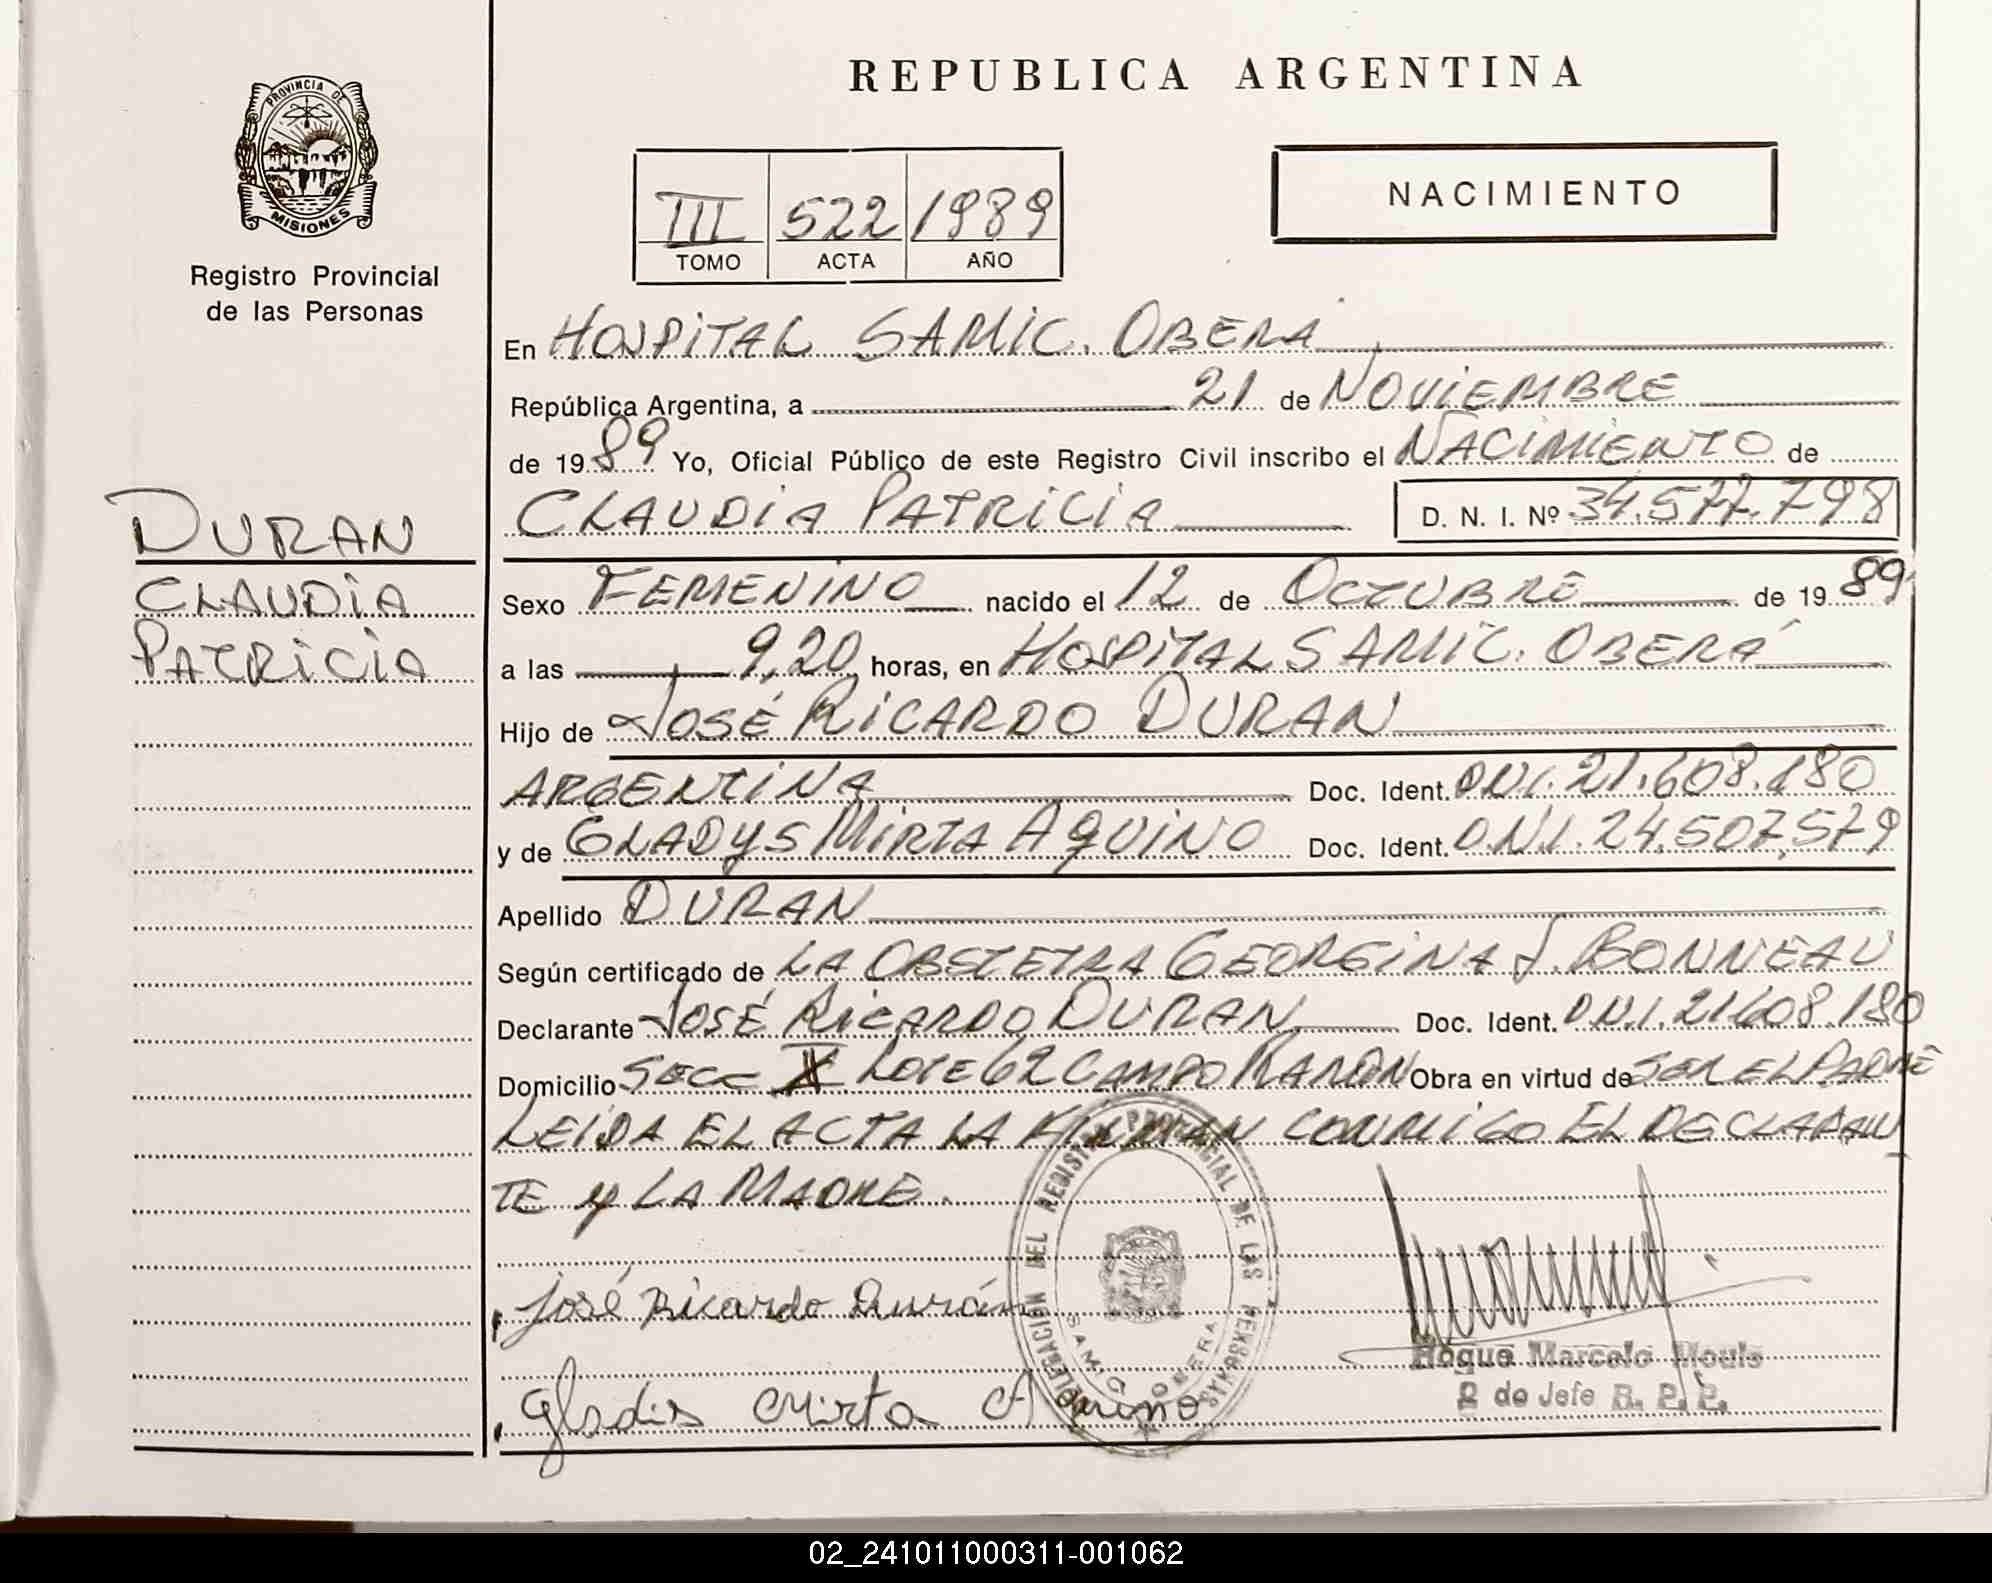 REPUBLICA ARGENTINA
PROVINCIA DE MISIONES
Registro Provincial
de las Personas
III 522 1989
TOMO ACTA AÑO
NACIMIENTO
En HOSPITAL SAMIC. OBERA
República Argentina, a 21 de NOVIEMBRE
de 1989 Yo, Oficial Público de este Registro Civil inscribo el NACIMIENTO de
CLAUDIA PATRICIA D. N. I. Nº 34.577.798
DURAN
CLAUDIA
PATRICIA
Sexo FEMENINO nacido el 12 de OCTUBRE de 1989
a las 9,20 horas, en HOSPITAL SAMIC. OBERÁ
Hijo de JOSÉ RICARDO DURAN
ARGENTINA Doc. Ident. D.N.I. 21.608.180
y de GLADYS MIRTA AQUINO Doc. Ident. D.N.I. 24.507.579
Apellido DURAN
Según certificado de LA OBSTETRA GEORGINA J. BONNEAU
Declarante JOSÉ RICARDO DURAN Doc. Ident. D.N.I. 21.608.180
Domicilio SECC X LOTE 62 CAMPO RAMON Obra en virtud de SER EL PADRE
LEIDA EL ACTA LA FIRMAN CONMIGO EL DECLARAN
TE y LA MADRE.
José Ricardo Durán
Gladis Mirta Aquino
DELEGACIÓN DEL REGISTRO PROVINCIAL DE LAS PERSONAS
SAMIC OBERA
Roque Marcelo
2 do Jefe R. P. P.
02_241011000311-001062